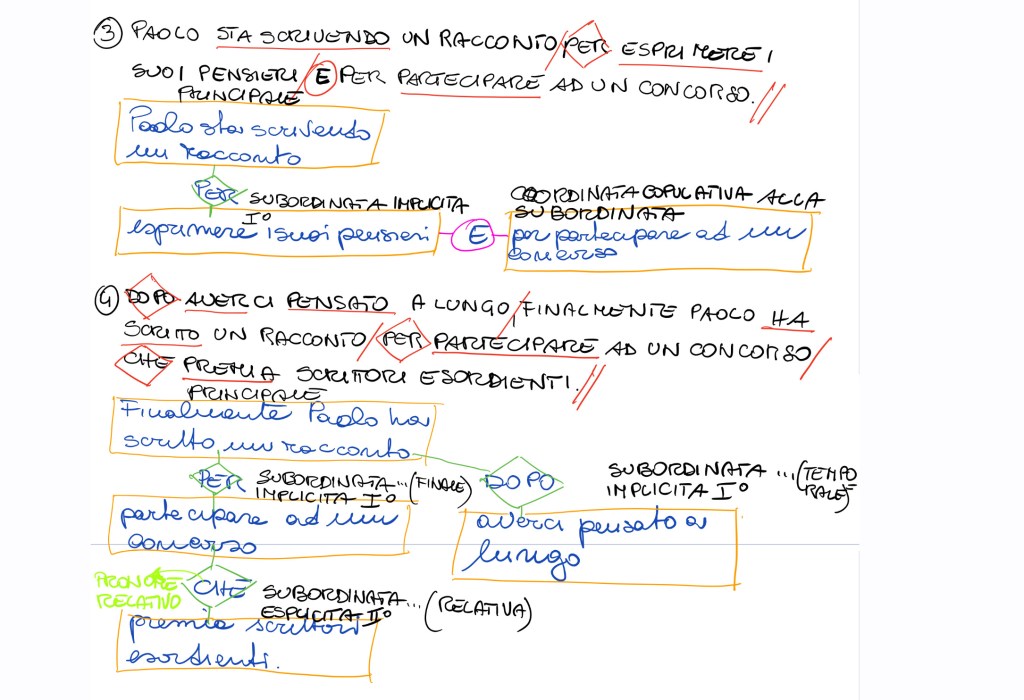 ③ PAOLO STA SCRIVENDO UN RACCONTO/PER ESPRIMERE I
SUOI PENSIERI/E PER PARTECIPARE AD UN CONCORSO.//
PRINCIPALE
Paolo sta scrivendo
un racconto
PER SUBORDINATA IMPLICITA
I°
esprimere i suoi pensieri
E
COORDINATA COPULATIVA ALLA
SUBORDINATA
per partecipare ad un
concorso
④ DOPO AVERCI PENSATO A LUNGO,/FINALMENTE PAOLO HA
SCRITO UN RACCONTO/PER PARTECIPARE AD UN CONCORSO/
CHE PREMIA SCRITTORI ESORDIENTI.//
PRINCIPALE
Finalmente Paolo ha
scritto un racconto
PER SUBORDINATA...(FINALE)
IMPLICITA I°
partecipare ad un
concorso
DOPO
SUBORDINATA ...(TEMPO
IMPLICITA I° RALE)
averci pensato a
lungo
PRONOME
RELATIVO
CHE SUBORDINATA...(RELATIVA)
ESPLICITA II°
premia scrittori
esordienti.